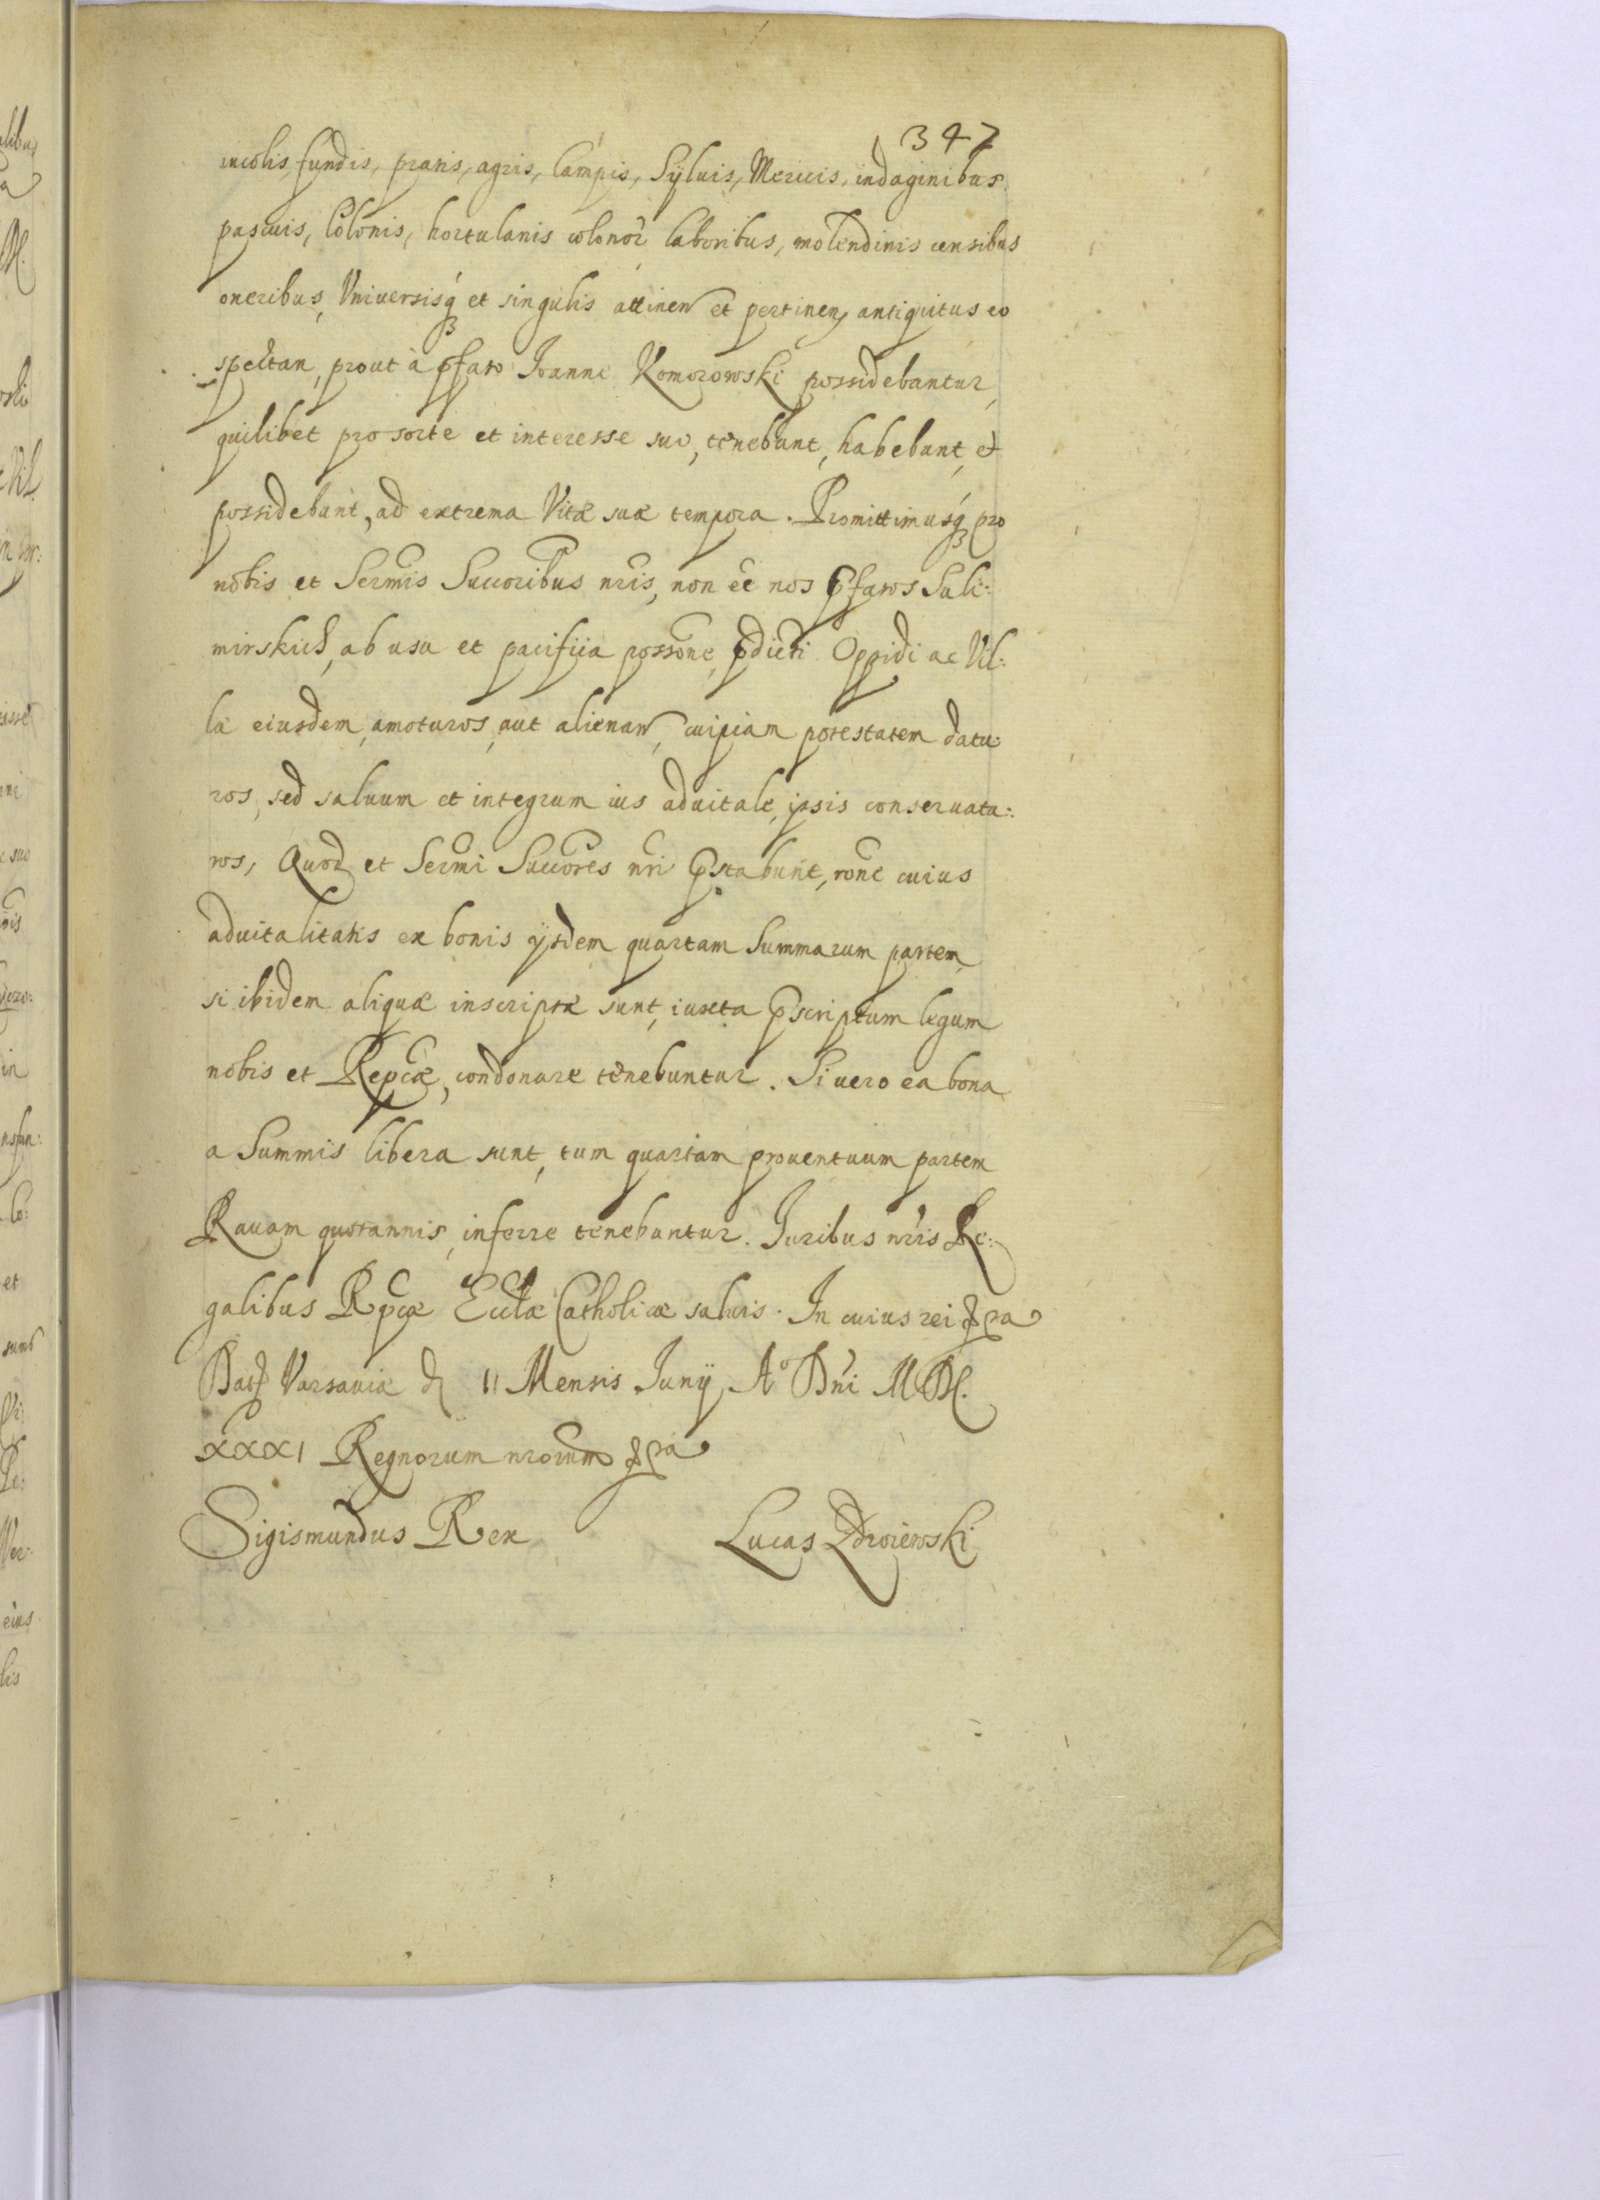 347
incolis fundis, pratis, agris, Campis, Sÿluis, Mericis, indaginibus
pascuis, Colonis, hortulanis colonor̃ laboribus, molendinis censibus
oneribus, Vniuersisq́ꝫ et singulis attinen et pertinen antiquitus eo
spectan, prout à p̃fato Joanne Komorowski possidebantur,
quilibet pro sorte et interesse suo, tenebunt, habebunt, et
possidebunt, ad extrema Vitæ suæ tempora. Promittimusq́ꝫ pro
nobis et Serm̃is Succoribus nr̃is, non eẽ nos p̃fatos Suli:
mirskich, ab usu et pacifica possonẽ, p̃dicti Oppidi ac Vil:
læ eiusdem, amoturos, aut alienan, cuipiam potestatem datu:
ros, sed saluum et integrum ius aduitale, ipsis conseruatu:
ros, Quod et Serm̃i Succorẽs nr̃i p̃stabunt, ronẽ cuius
aduitalitatis ex bonis ijsdem quartam Summarum partem,
si ibidem aliquæ inscriptæ sunt, iuxta p̃scriptum legum
nobis et Reipcæ, condonare tenebuntur. Si uero ea bona
a Summis libera sunt, tum quartam prouentuum partem
Rauam quotannis, inferre tenebuntur. Juribus nr̃is Re:
galibus Rpcæ Ecclæ Catholicæ saluis. In cuius rei &ra
Dat Varsauiæ d 11 Mensis Junÿ, Aº Dñi MDC.
XXXI Regnorum nrorum &ra
Sigismundus Rex Lucas Zdroiewski